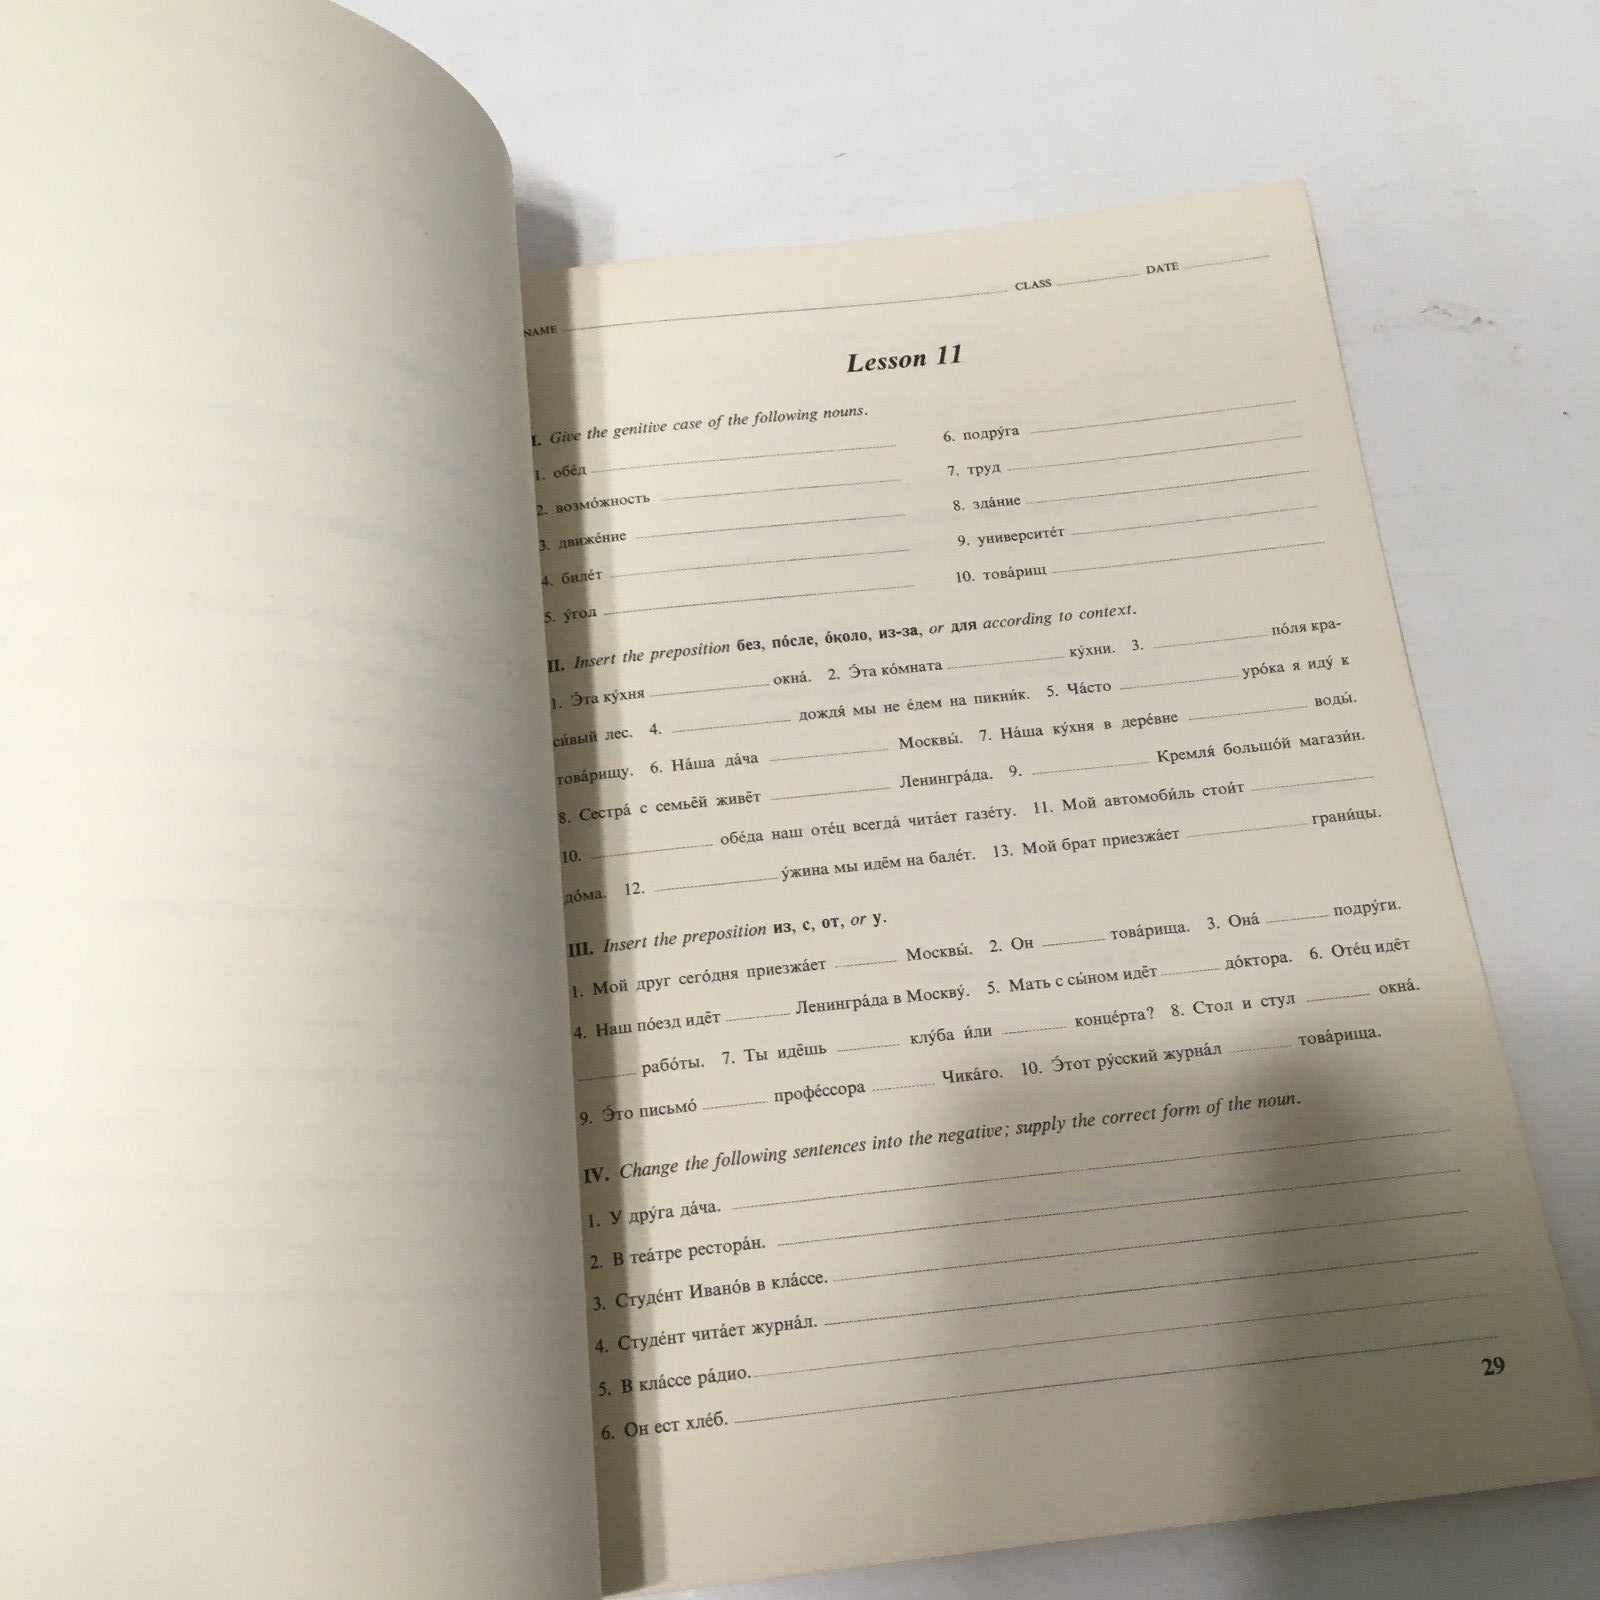 NAME CLASS DATE
Lesson 11
I. Give the genitive case of the following nouns.
1. обе́д
2. возмо́жность
3. движе́ние
4. биле́т
5. у́гол
6. подру́га
7. труд
8. зда́ние
9. университе́т
10. това́рищ
II. Insert the preposition без, по́сле, о́коло, из-за, or для according to context.
1. Э́та ку́хня окна́. 2. Э́та ко́мната ку́хни. 3. по́ля кра-
си́вый лес. 4. дождя́ мы не е́дем на пикни́к. 5. Ча́сто уро́ка я иду́ к
това́рищу. 6. На́ша да́ча Москвы́. 7. На́ша ку́хня в дере́вне воды́.
8. Сестра́ с семьёй живёт Ленингра́да. 9. Кремля́ большо́й магази́н.
10. обе́да наш оте́ц всегда́ чита́ет газе́ту. 11. Мой автомоби́ль стои́т
до́ма. 12. у́жина мы идём на бале́т. 13. Мой брат приезжа́ет грани́цы.
III. Insert the preposition из, с, от, or у.
1. Мой друг сего́дня приезжа́ет Москвы́. 2. Он това́рища. 3. Она́ подру́ги.
4. Наш по́езд идёт Ленингра́да в Москву́. 5. Мать с сы́ном идёт до́ктора. 6. Оте́ц идёт
рабо́ты. 7. Ты идёшь клу́ба и́ли конце́рта? 8. Стол и стул окна́.
9. Э́то письмо́ профе́ссора Чика́го. 10. Э́тот ру́сский журна́л това́рища.
IV. Change the following sentences into the negative; supply the correct form of the noun.
1. У дру́га да́ча.
2. В теа́тре рестора́н.
3. Студе́нт Ивано́в в кла́ссе.
4. Студе́нт чита́ет журна́л.
5. В кла́ссе ра́дио.
6. Он ест хле́б.
29